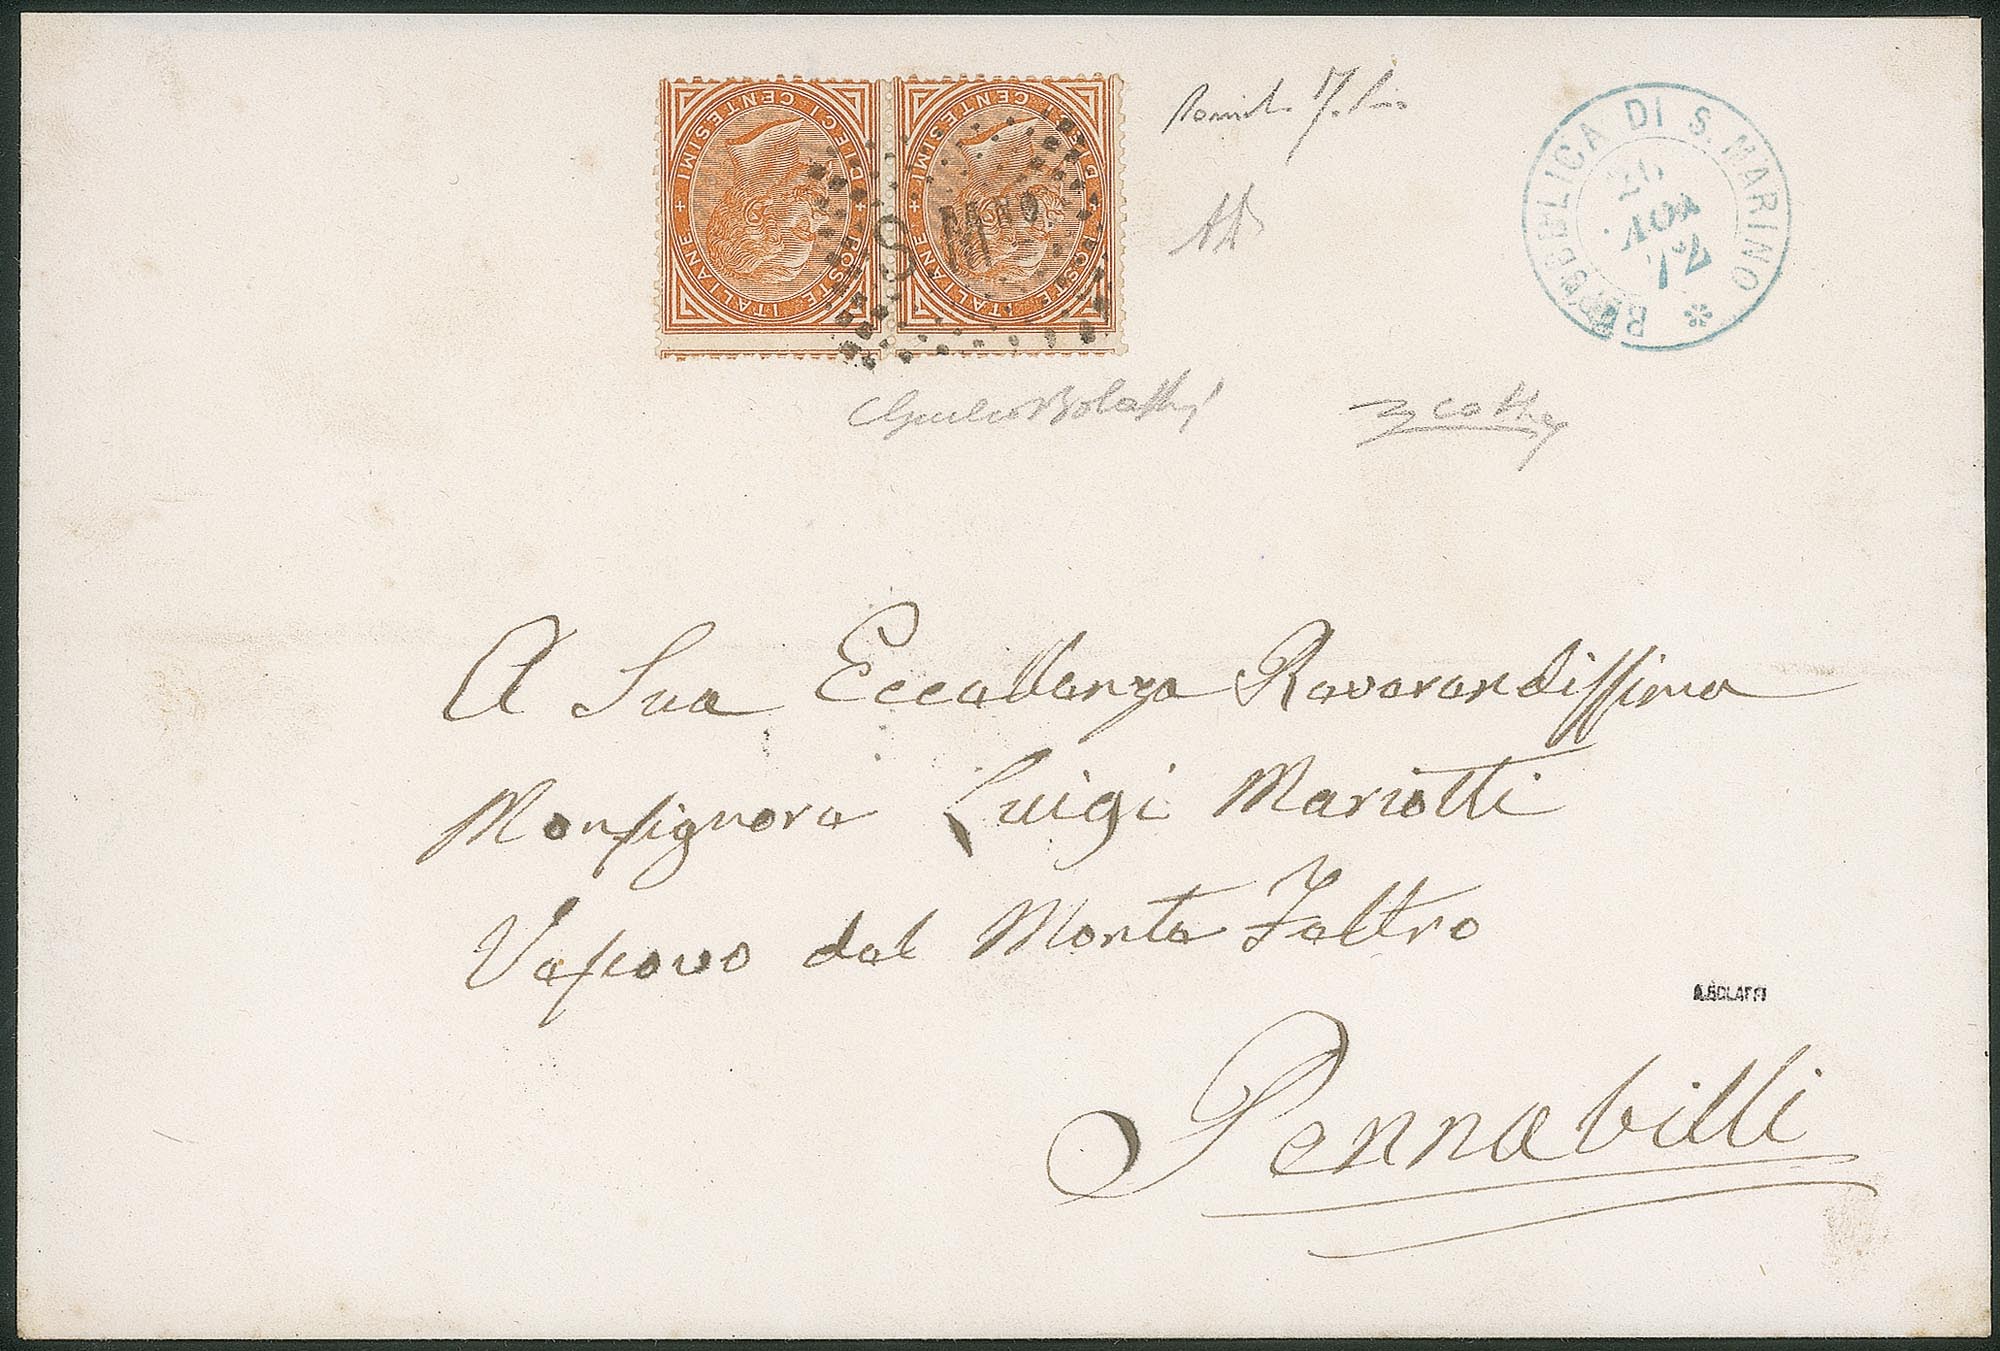 POSTE ITALIANE + DIECI CENTESIMI +
POSTE ITALIANE + DIECI CENTESIMI +
S. MNO
REPUBBLICA DI S. MARINO
NOV
72
Giulio Bolaffi
A Sua Eccellenza Reverendissima
Monsignore Luigi Mariotti
Vescovo del Monte Feltro
A.BOLAFFI
Pennabilli